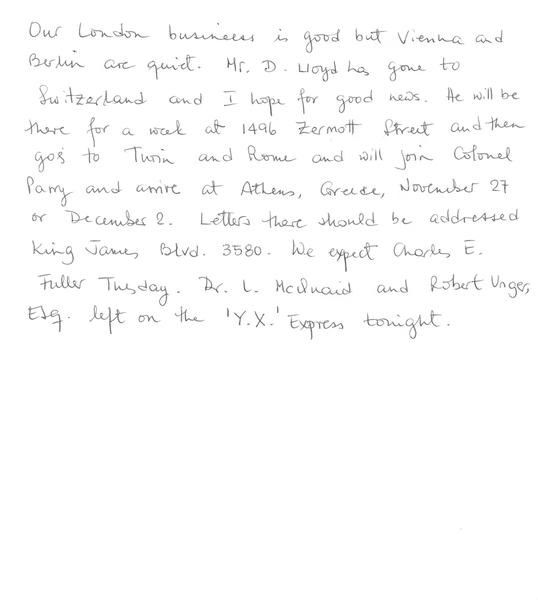 Our London business is good but Vienna and
Berlin are quiet. Mr. D. Lloyd has gone to
Switzerland and I hope for good news. He will be
there for a week at 1496 Zermott Street and then
goes to Turin and Rome and will join Colonel
Parry and arrive at Athens, Greece, November 27
or December 2. Letters there should be addressed
King James Blvd. 3580. We expect Charles E.
Fuller Tuesday. Dr. L. McQuaid and Robert Unger,
Esq. left on the 'Y.X.' Express tonight.